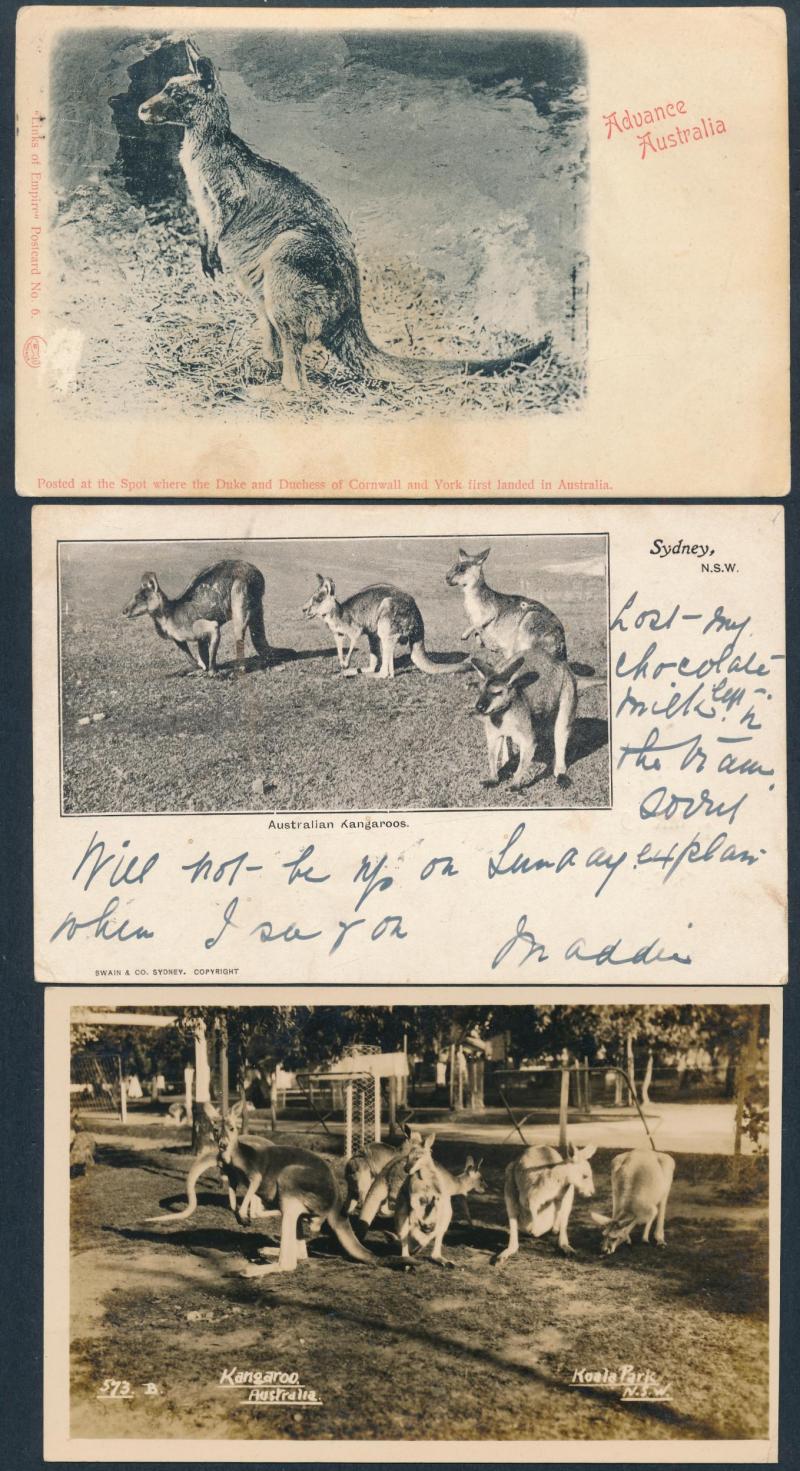 Advance
Australia
"Links of Empire" Postcard No. 6.
Posted at the Spot where the Duke and Duchess of Cornwall and York first landed in Australia.
Sydney,
N.S.W.
Lost my
chocolate
milk left in
the tram.
Australian Kangaroos.
Will not be up on Sunday. explain
when I see you
Maddie
SWAIN & CO. SYDNEY. COPYRIGHT
573. B.
Kangaroo.
Australia.
Koala Park.
N.S.W.